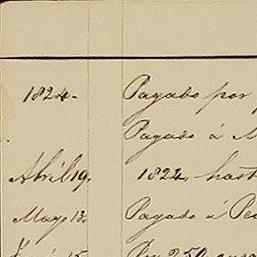 1824 Pagado por
Pagado á
Abril 19. 1824, hast
Mayo 12. Pagado á Pe
15 250